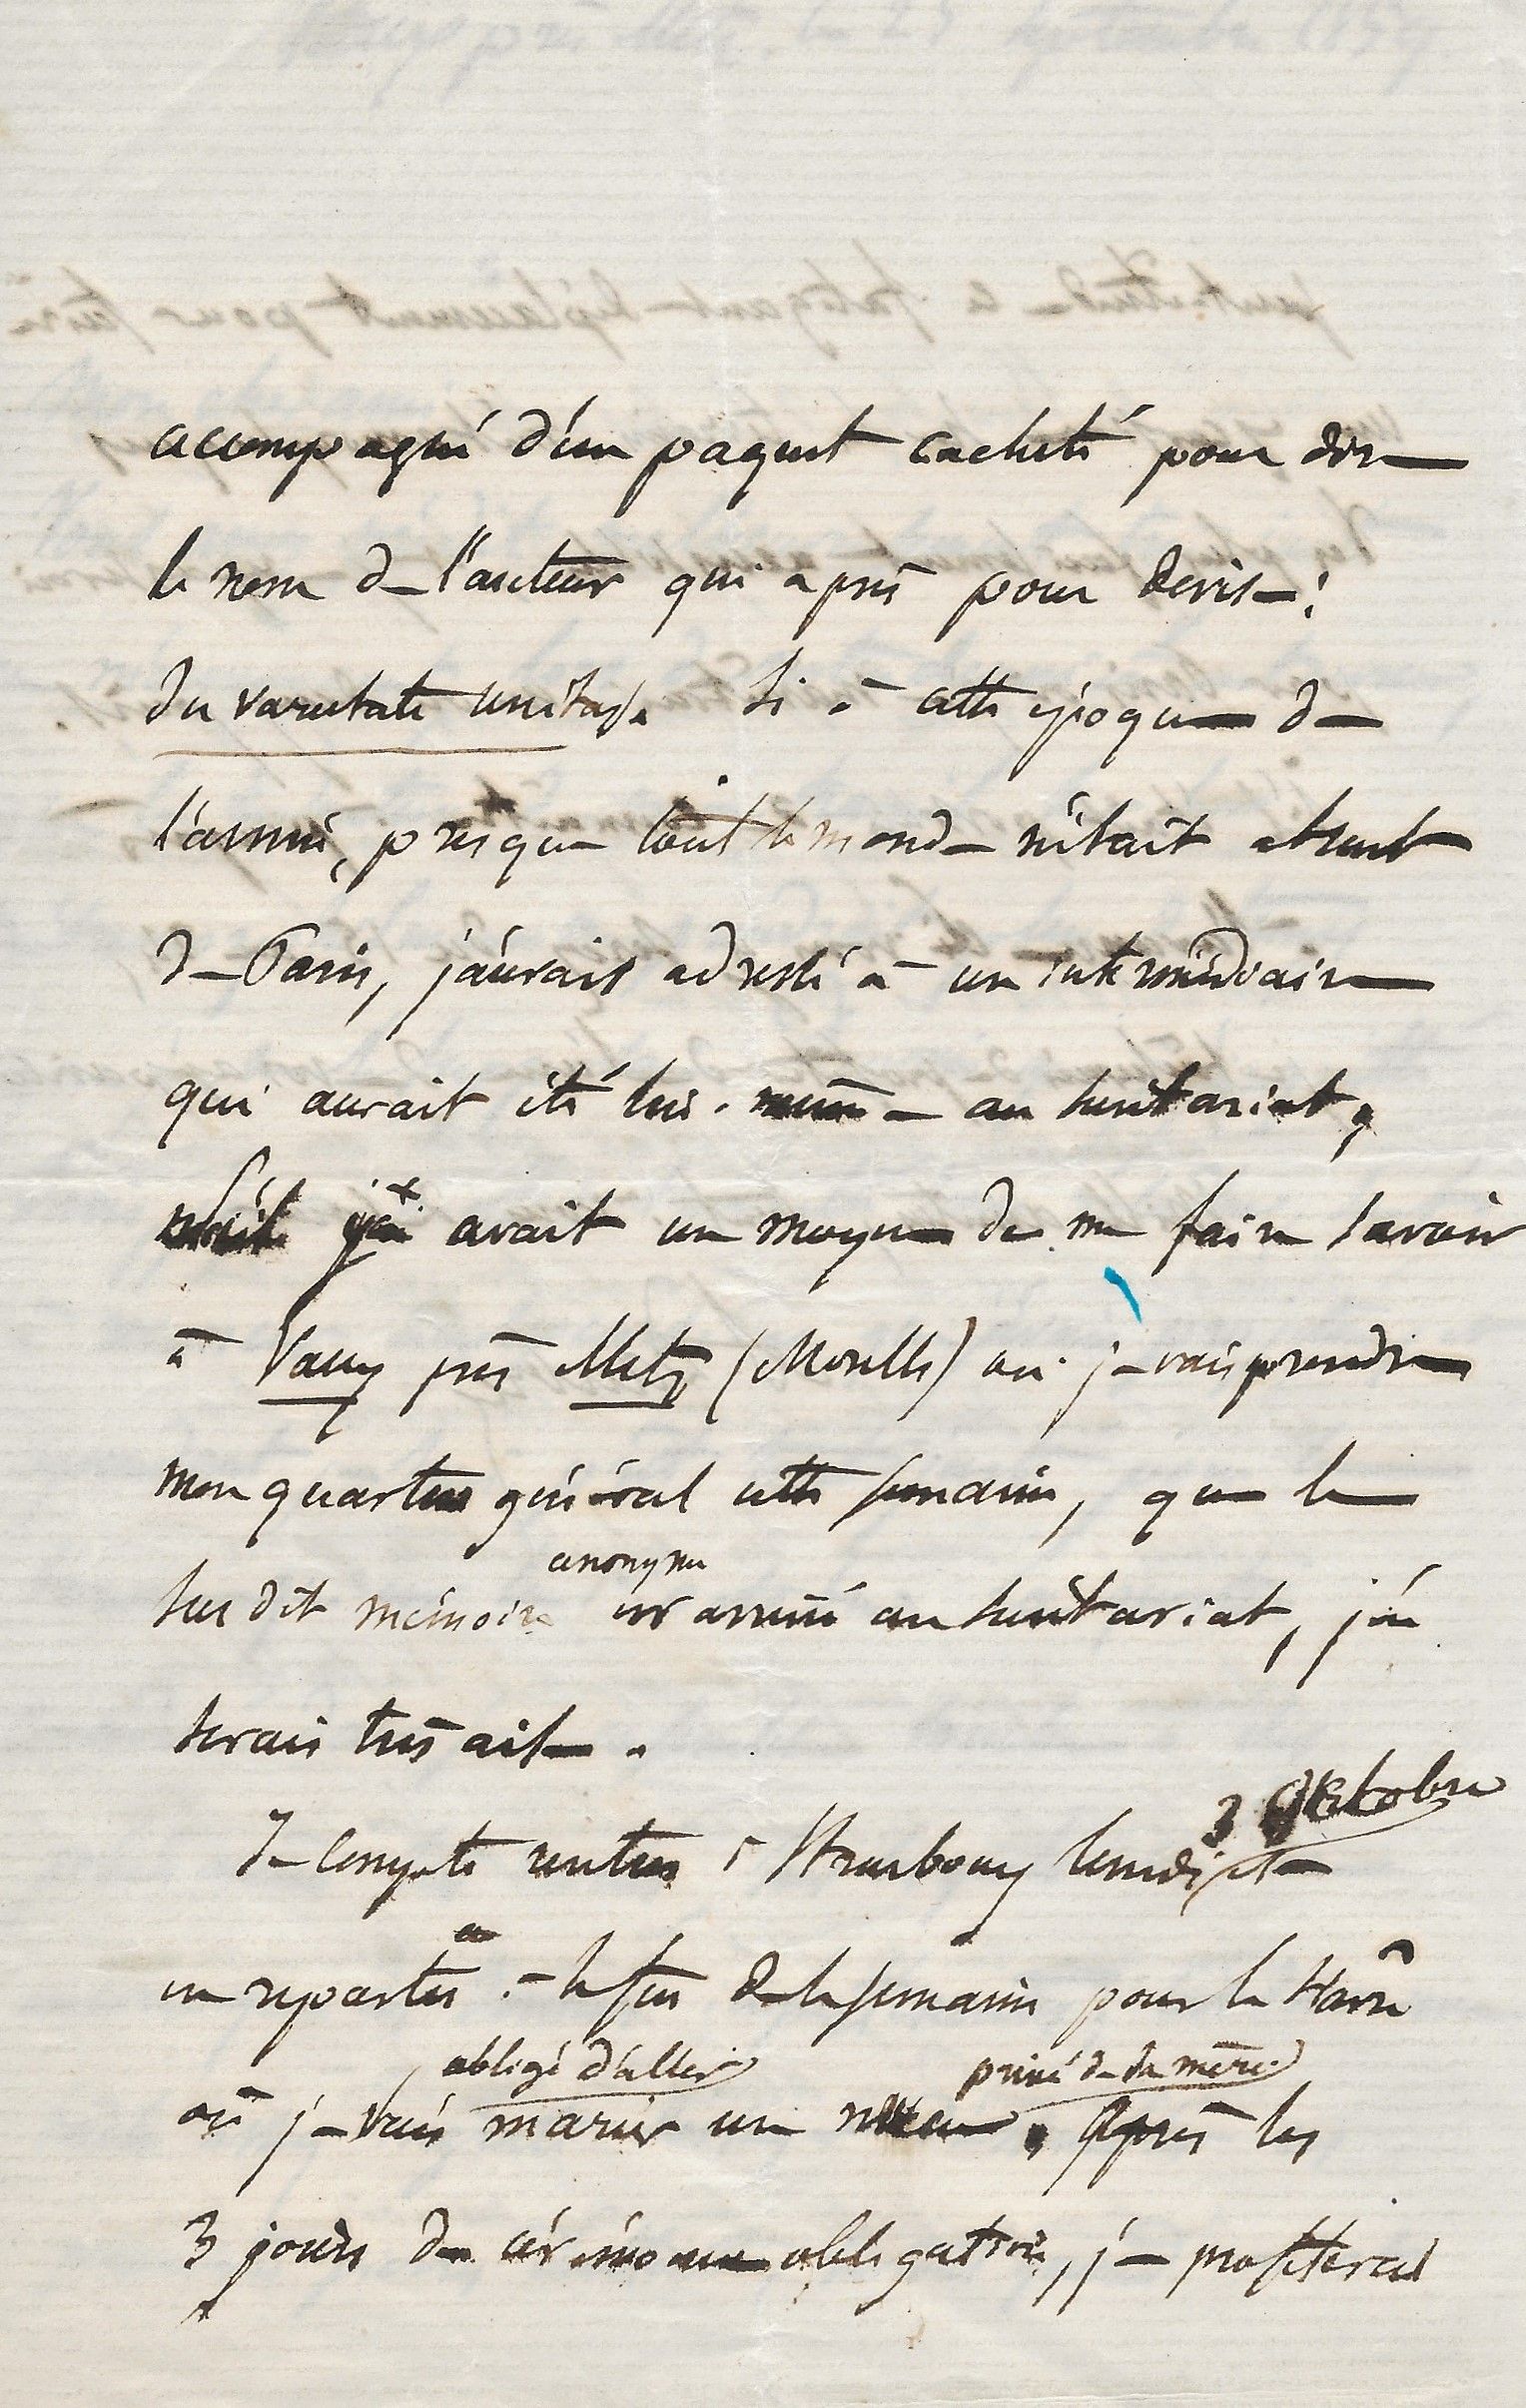 accompagné d'un paquet cacheté pour dire
le nom de l'auteur qui a pris pour devise:
du varietate unitas. Si à cette époque de
l'année, presque tout le monde n'était absent
de Paris, j'aurais adressé à un intermédiaire
qui aurait été lui-même au secrétariat,
avait un moyen de me faire savoir
à Vany près Metz (Moselle) où je vais prendre
mon quartier général cette semaine, que le
anonyme
susdit mémoire est arrivé au secrétariat, j'en
serais très aise.
3 Oktobre
Je compte rentrer à Strasbourg lundi et
en repartir à la fin de la semaine pour le Havre
obligé d'aller privé de sa mère
où je vais marier un neveu. Après les
3 jours de cérémonie obligatoire, je profiterai